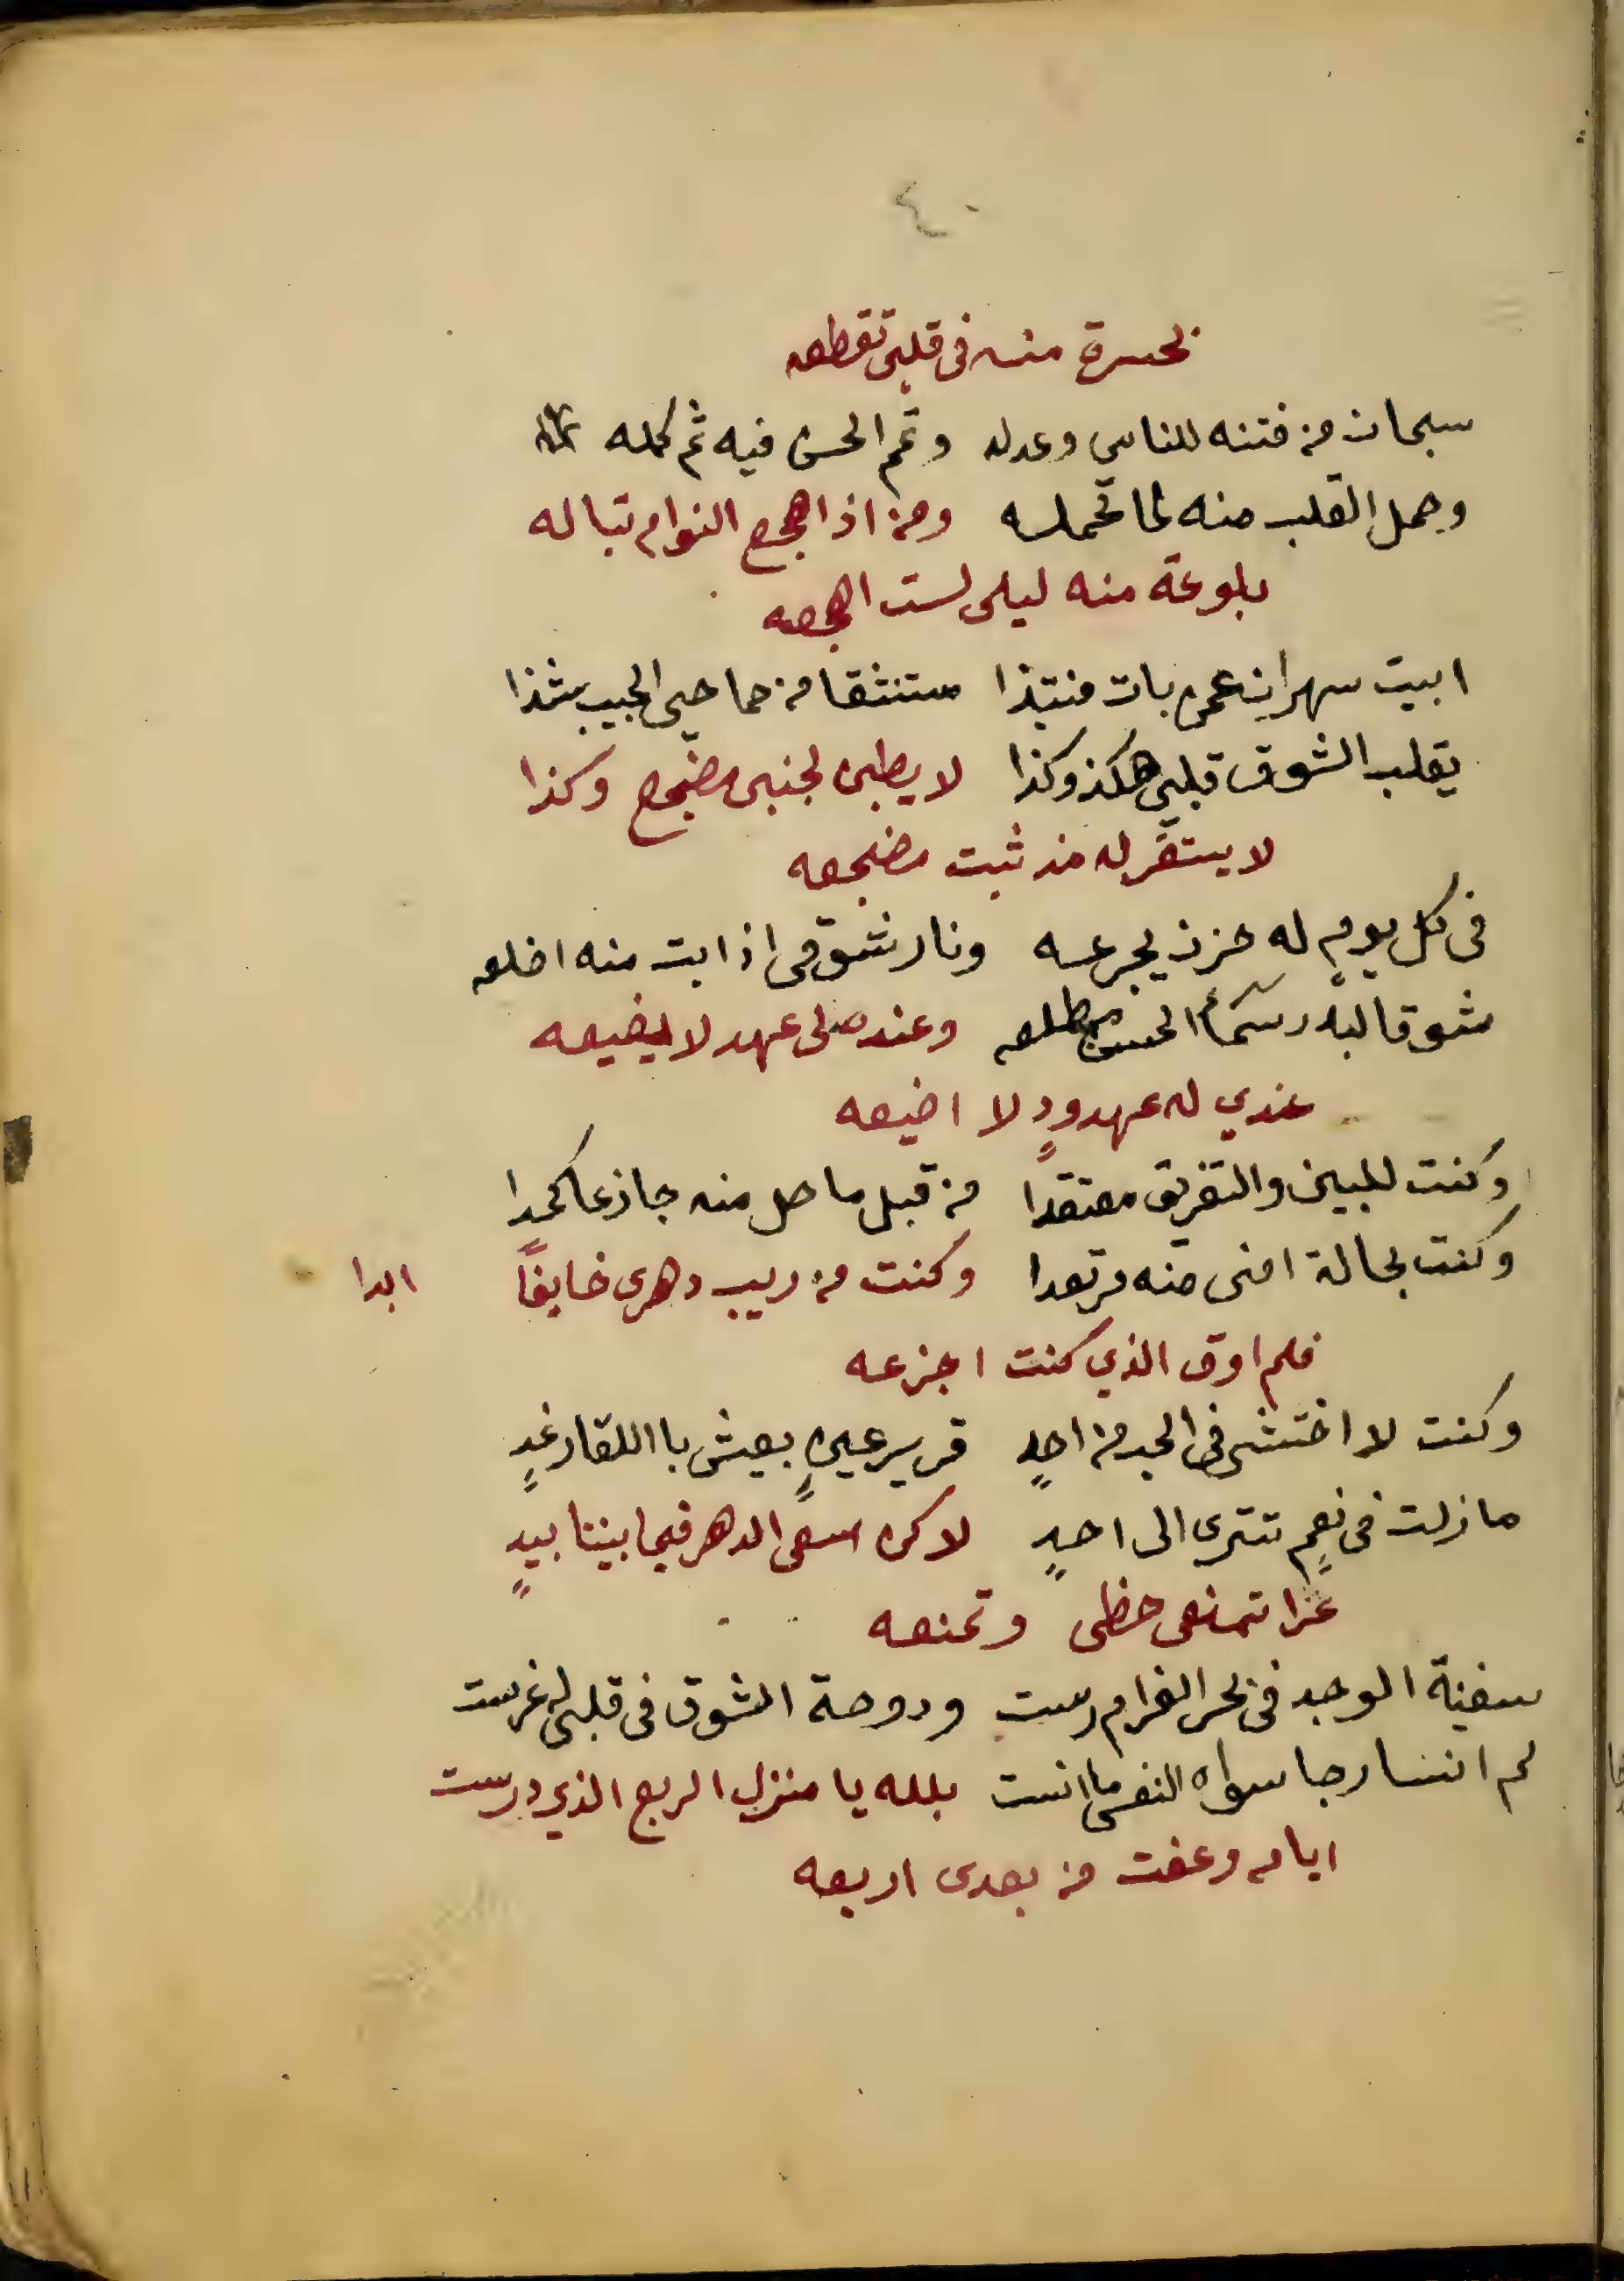 ٤٠
بحسرة منه فى قلبى تقطعه
سبحان من فتنه للناس وعدله وتم الحسن فيه ثم كمله
وحمل القلب منه لما تحمله ومن اذا هجع النوام تباله
بلوعة منه ليلى لست اهجعه
ابيت سهران عمن بات منتبذا مستنثقا من حما حيى الحبيب شذا
يقلب الشوق قلبى هكذ وكذا لا يطبن لجنبى مضجع وكذا
لا يستقر له مذ ثبت مضجعه
فى كل يوم له حزن يجرعه ونار شوقى اذا بت منه اضلعه
شوقا لبدر سماء الحسن مطلعه وعنده لى عهد لا يضيعه
عندي له عهد ودٍ لا اضيعه
وكنت للبين والتفريق معتقدا من قبل ما حل منه جازعا كمدا
وكنت بحالة امنى منه مرتعدا وكنت من ريب دهرى خايفًا ابدا
فلم اوق الذي كنت اجزعه
وكنت لا اختشى فى الحب من احدٍ قرير عينٍ بعيش با اللقا رغدٍ
ما زلت فى نعمٍ تترى الى احدٍ لاكن سعى الدهر فيما بيننا بيدٍ
عسرا تمنعى حظى وتمنعه
سفينة الوجد فى بحر الغرام رست ودوحة الشوق فى قلبى له غرست
لم انسا رجا سواه النفس ما انست بلله يا منزل الربع الذي درست
ايامه وعفت من بعدى اربعه